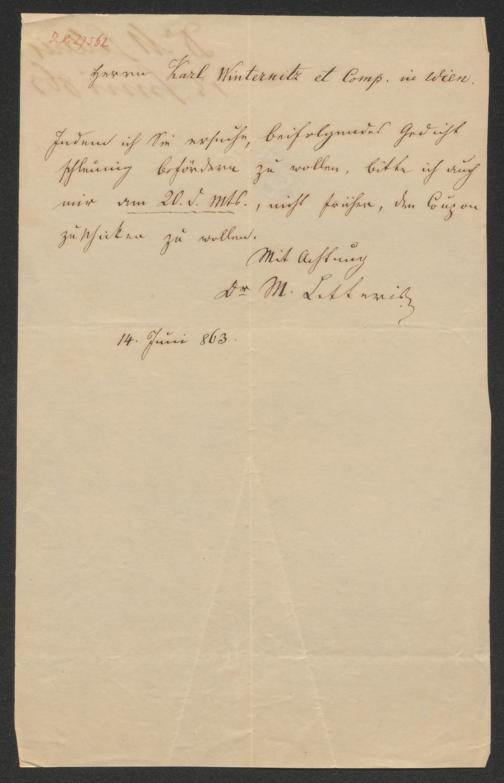 Herrn Karl Winternitz et Comp. in Wien.
Indem ich Sie ersuche, beifolgendes Gedicht
schleunig befördern zu wollen, bitte ich auch
mir am 20. d. Mts., nicht früher, den Coupon
zuschicken zu wollen.
Mit Achtung
Dr M. Letteris
14. Juni 863.